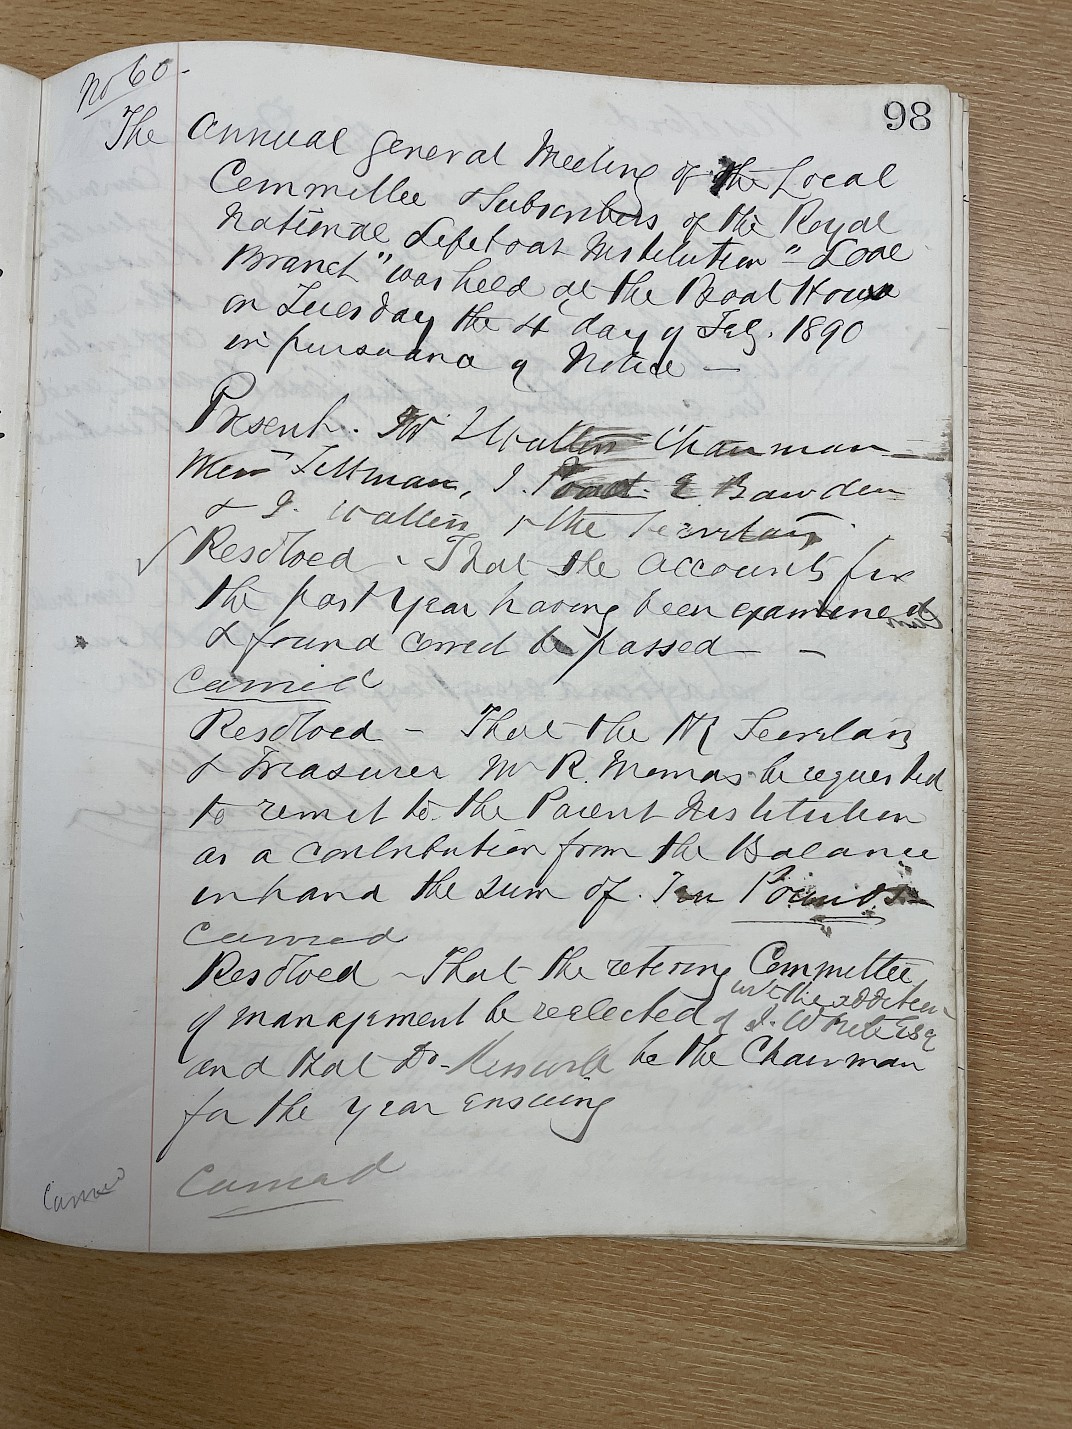 No 60-
98
The Annual General Meeting of the Local
Committee & Subscribers of the Royal
National Lifeboat Institution "Looe
Branch" was held at the Boat House
on Tuesday the 4 day of Feb. 1890
in pursuance of Notice —
Present. Mr Chairman
Mess Tillman, J. Bawden
& the Secretary
Resolved - That the accounts for
the past year having been examined
& found correct be passed — —
Carried
Resolved - That the H Secretary
& Treasurer Mr R. be requested
to remit to the Parent Institution
as a contribution from the Balance
in hand the sum of Ten Pounds
Carried
Resolved - That the retiring Committee
with the addition
of management be reelected of J. White Esq
and that Dr be the Chairman
for the year ensuing
Carried
Carried